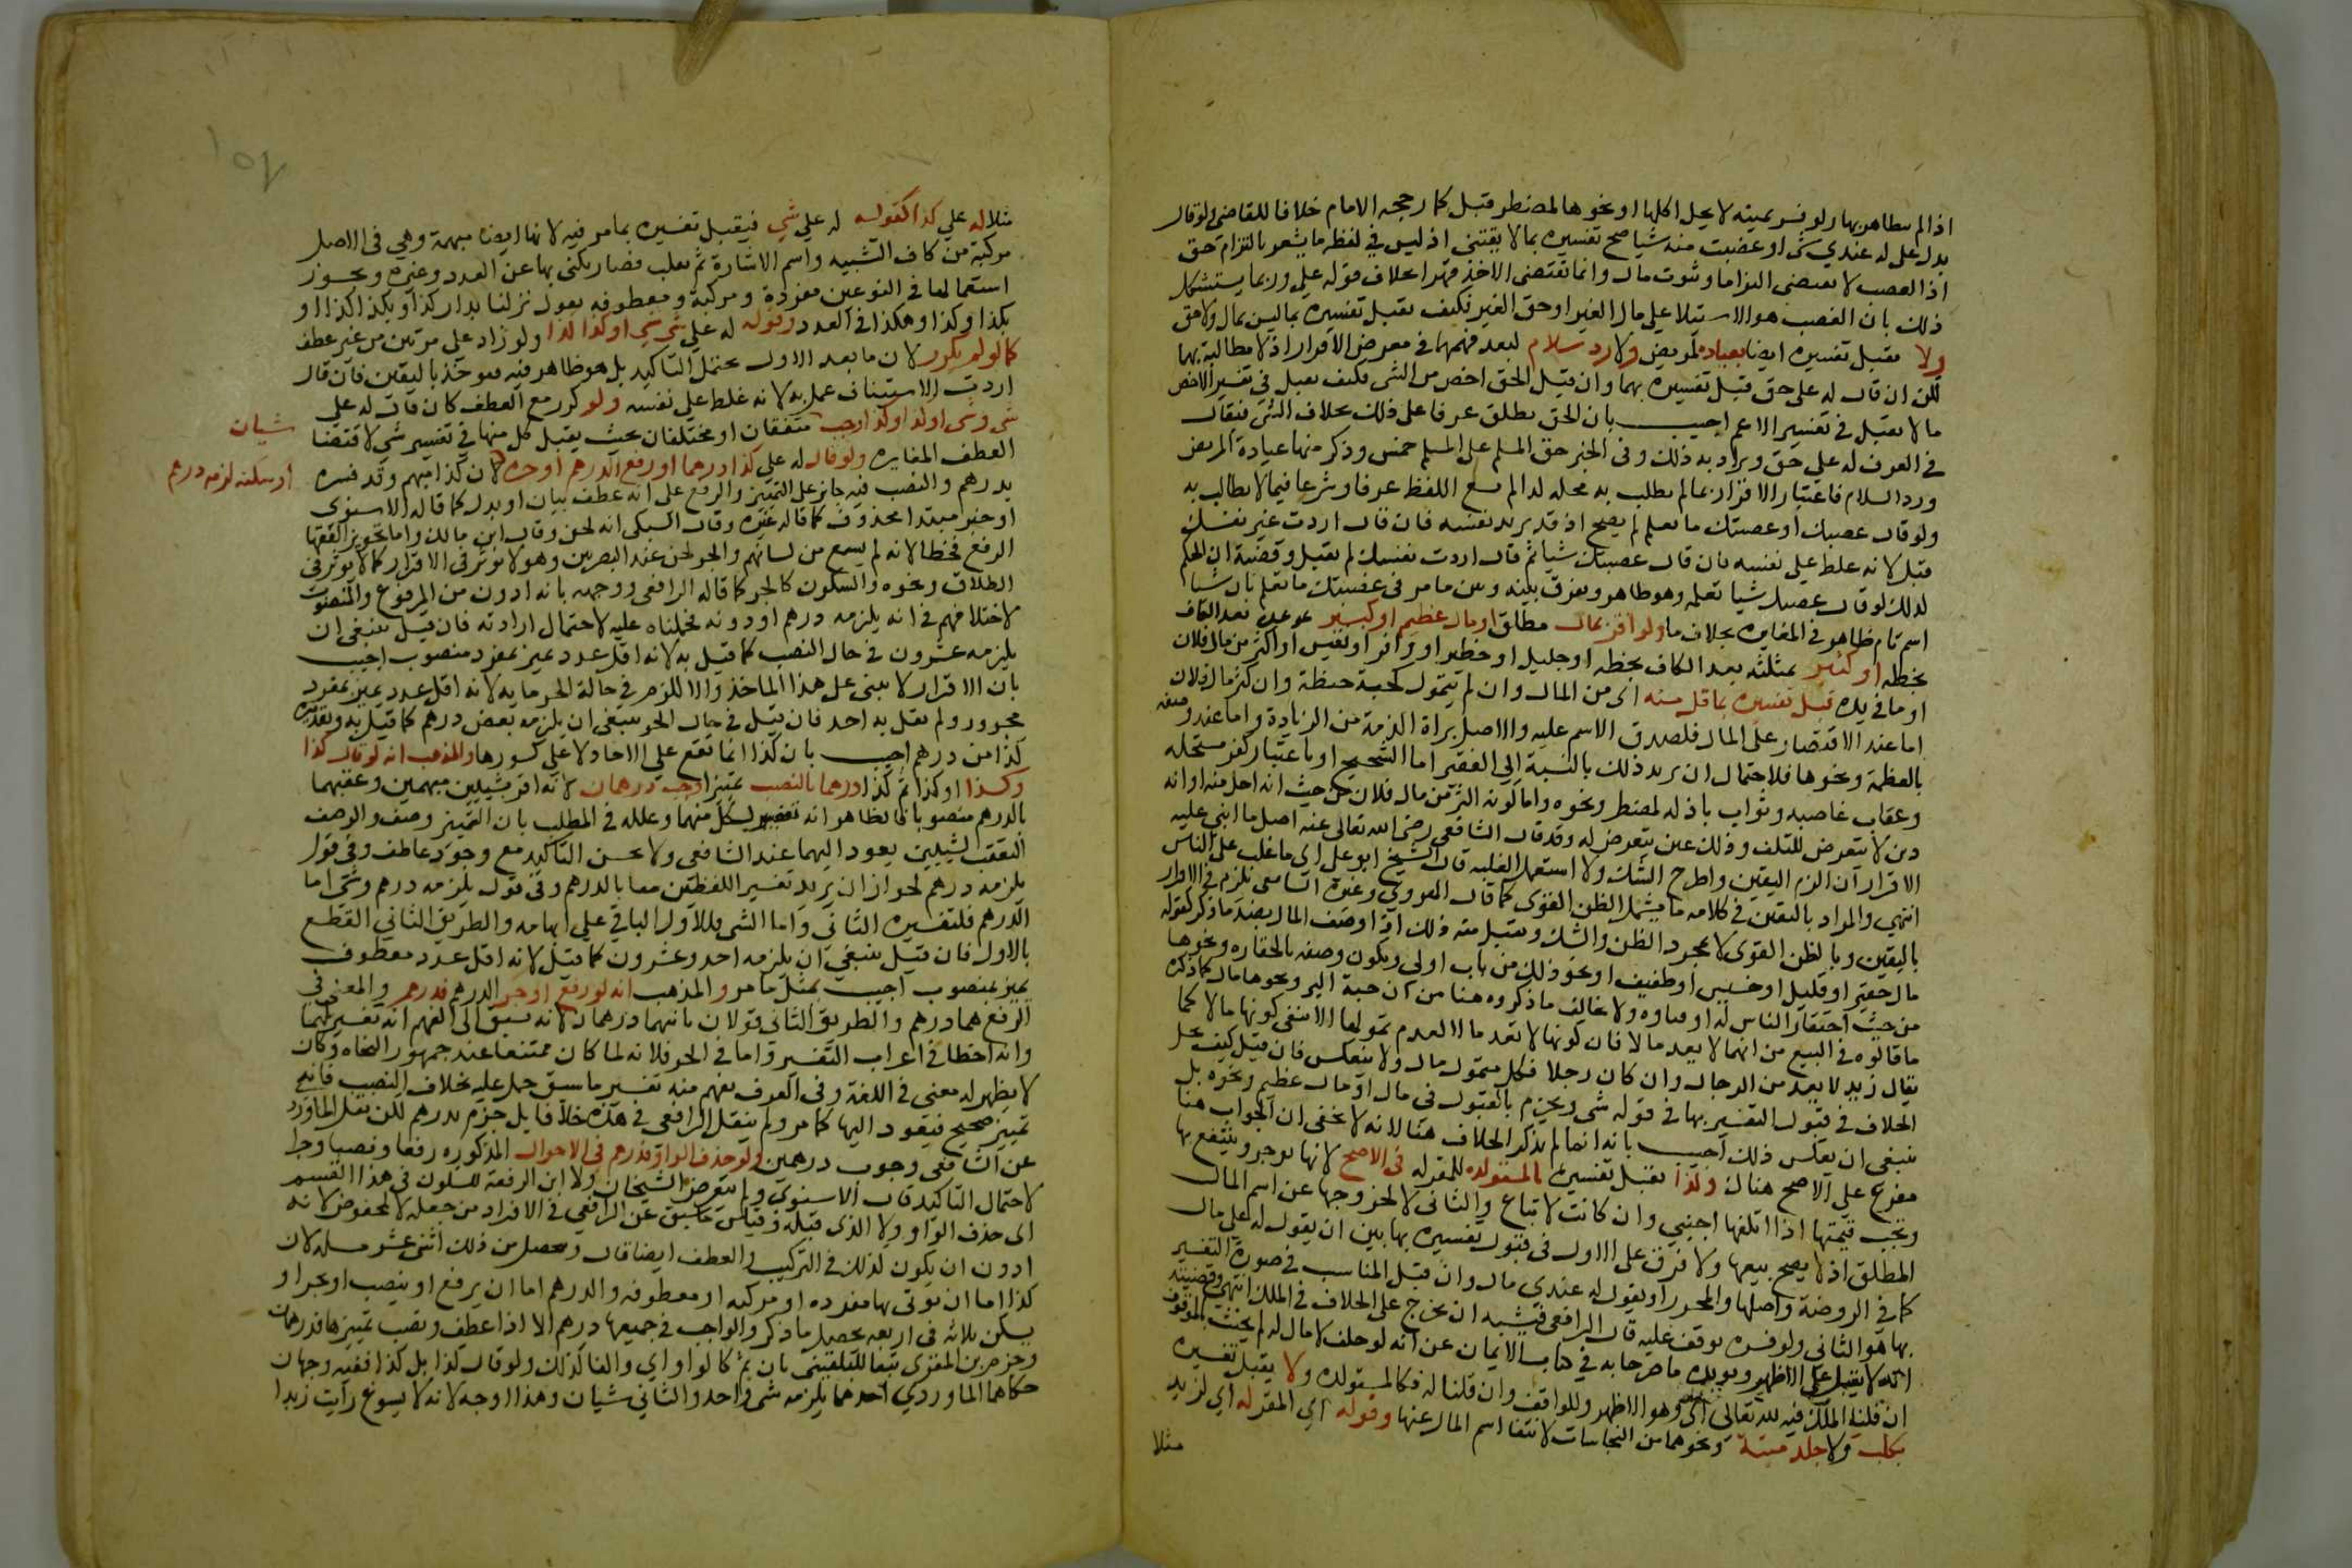 اذ لا مطالبة بها ولو فسر بميتة لا يحل اكلها او نحوها لمضطر قبل كما رجحه الامام خلافا للقاضي ولو قال
بدل علي له عندي شي او غصبت منه شيا صح تفسيره بما لا يقتنى اذ ليس في لفظه ما يشعر بالتزام حق
اذ الغصب لا يقتضي التزاما وثبوت مال وانما يقتضي الاخذ قهرا بخلاف قوله علي وربما يستشكل
ذلك بان الغصب هو الاستيلا على مال الغير او حق الغير فكيف يقبل تفسيره بما ليس بمال ولا حق
ولا يقبل تفسيره ايضا بعيادة لمريض ولا رد سلام لبعد فهمهما في معرض الاقرار اذ لا مطالبة بهما
لكن ان قال له علي حق قبل تفسيره بهما وان قيل الحق اخص من الشي فكيف يقبل في تفسير الاخص
ما لا يقبل في تفسير الاعم اجيب بان الحق يطلق عرفا على ذلك بخلاف الشي فيقال
في العرف له علي حق ويراد به ذلك وفي الخبر حق المسلم على المسلم خمس وذكر منها عيادة المريض
ورد السلام فاعتبار الاقرار بما لم يطلب به محله اذا لم يشع اللفظ عرفا وشرعا فيما لا يطالب به
ولو قال غصبتك او غصبتك ما تعلم لم يصح اذ قد يريد نفسه فان قال اردت غير نفسك
قبل لانه غلظ على نفسه فان قال غصبتك شيا ثم قال اردت نفسك لم تقبل وقضية ان الحكم
كذلك لو قال غصبتك شيا تعلمه وهو ظاهر ويفرق بينه وبين ما مر في غصبتك ما تعلم بان شيا
اسم تام ظاهر في المغايرة بخلاف ما ولو اقر بمال مطلق او مال عظيم او كبير بموحدة بعد الكاف
بخطه او كثير بمثلثة بعد الكاف بخطه او جليل او خطير او وافر او نفيس او اكثر من مال فلان
او ما في يده قبل تفسيره بما قل منه اي من المال وان لم يتمول كحبة حنطة وان كثر مال فلان
اما عند الاقتصار على المال فلصدق الاسم عليه والاصل براة الذمة من الزيادة واما عند وصفه
بالعظمة ونحوها فلاحتمال ان يريد ذلك بالنسبة الى الفقير اما الشحيح او باعتبار كفر مستحله
وعقاب غاصبه وثواب باذله لمضطر ونحوه واما كونه اكثر من مال فلان من حيث انه احل منه او انه
دين لا يتعرض للتلف وذلك عين يتعرض له وقد قال الشافعي رضي الله تعالى عنه اصل ما ابني عليه
الاقرار ان الزم اليقين واطرح الشك ولا استعمل الغلبة قال الشيخ ابو علي اي ما غلب على الناس
انتهى والمراد باليقين في كلامه ما يشمل الظن القوي كما قال الهروي وغيره الشافعي يلزم في الاقرار
باليقين وبالظن القوي لا بمجرد الظن والشك ويقبل منه ذلك اذا وصف المال بضد ما ذكر كقوله
مال حقير او قليل او خسيس او طفيف او نحو ذلك من باب اولى ويكون وصفه بالحقارة ونحوها
من حيث احتقار الناس له او فناوه ولا يخالف ما ذكروه هنا من ان حبة البر ونحوها مال كما ذكره
ما قالوه في البيع من انها لا يعد مالا فان كونها لا تعد مالا لعدم تمولها لا ينفي كونها مالا كما
يقال زيد لا يعد من الرجال وان كان رجلا فكل متمول مال ولا ينعكس فان قيل كيف يحل
الخلاف في قبول التفسير بها في قوله شي ويجزم بالقبول في مال او مال عظيم ونحوه بل
ينبغي ان يعكس ذلك اجيب بانه انما لم يذكر الخلاف هنا لانه لا يخفى ان الجواب هنا
مفرع على الاصح هناك وكذا يقبل تفسيره بالمستولدة للمقر له في الاصح لانها توجر وينتفع بها
وتجب قيمتها اذا اتلفها اجنبي وان كانت لا تباع والثاني لا لخروجها عن اسم المال
المطلق اذ لا يصح بيعها ولا فرق على الاول في قبول تفسيره بها بين ان يقول له علي مال
كما في الروضة واصلها والمحرر او يقول له عندي مال وان قيل المناسب في صورة التفسير
بها هو الثاني ولو فسره بوقف عليه قال الرافعي فيشبه ان يخرج على الخلاف في الملك انتهى وقضيته
انه لا يقبل على الاظهر ويويده ما صرحا به في كتاب الايمان عن انه لو حلف لا مال له لم يحنث بالموقوف
ان قلنا الملك فيه لله تعالى اي وهو الاظهر وللواقف وان قلنا له فكالمستولدة ولا يقبل تفسيره
بكلب ولا جلد ميتة ونحوهما من النجاسات لانتفا اسم المال عنها وقوله اي المقر له اي لزيد
مثلا
مثلا له علي كذا كقوله له علي شي فيقبل تفسيره بما مر فيه لانها ايضا مبهمة وهي في الاصل
مركبة من كاف التشبيه واسم الاشارة ثم نقلت فصار يكنى بها عن العدد وغيره ويجوز
استعمالها في النوعين مفردة ومركبة ومعطوفه يقول نزلنا بدار كذا وبكذا كذا او
بكذا وكذا وهكذا في العدد وقوله له علي شي شي او كذا كذا ولو زاد على مرتين من غير عطف
كما لو لم يكرر لان ما بعد الاول يحتمل التاكيد بل هو ظاهر فيه فيوخذ باليقين فان قال
اردت الاستيناف عمل به لانه غلظ على نفسه ولو كرر مع العطف كان قال له علي
شي وشي او كذا وكذا وجب متفقان او مختلفان بحيث يقبل كل منهما في تفسير شي لاقتضا
شيان
العطف المغايرة ولو قال له علي كذا درهما او رفع الدرهم او جره لان كذا مبهم وقد فسره
او سكنه لزمه درهم
بدرهم والنصب فيه جائز على التمييز والرفع على انه عطف بيان او بدل كما قاله الاسنوي
او خبر مبتدا محذوف كما قاله غيره وقال السبكي انه لحن وقال ابن مالك واما تجويز الفقها
الرفع فخطا لانه لم يسمع من لسانهم والجر لحن عند البصريين وهو لا يوثر في الاقرار كما لا يوثر في
الطلاق ونحوه والسكون كالجر كما قاله الرافعي ووجهه بانه ادون من المرفوع والمنصوب
لاختلافهم في انه يلزمه درهم او دونه فحملناه عليه لاحتمال ارادته فان قيل ينبغي ان
يلزمه عشرون في حال النصب كما قيل به لانه اقل عدد ميز بمفرد منصوب اجيب
بان الاقرار لا يبنى على هذا الماخذ والا للزمه في حالة الجر مايه لانه اقل عدد ميز بمفرد
مجرور ولم يقل به احد فان قيل في حال الجر ينبغي ان يلزمه بعض درهم كما قيل به وتقديره
كذا من درهم اجيب بان كذا انما تقع على الاحاد لا على كسورها والمذهب انه لو قال كذا
وكذا او كذا ثم كذا درهما بالنصب تمييزا وجب درهمان لانه اقر بشيئين مبهمين وعقبهما
بالدرهم منصوبا فالظاهر انه تفسير لكل منهما وعلله في المطلب بان التمييز وصف والوصف
المتعقب لشيئين يعود اليهما عند الشافعي ولا يحسن التاكيد مع وجود عاطف وفي قول
يلزمه درهم لجواز ان يريد تفسير اللفظين معا بالدرهم وفي قول يلزمه درهم وشي اما
الدرهم فلتفسيره الثاني واما الشي فللاول الباقي على ابهامه والطريق الثاني القطع
بالاول فان قيل ينبغي ان يلزمه احد وعشرون كما قيل لانه اقل عدد معطوف
ميز بمنصوب اجيب بمثل ما مر والمذهب انه لو رفع او جر الدرهم فدرهم والمعنى في
الرفع هما درهم والطريق الثاني قولان ثانيهما درهمان لانه يسبق الى الفهم انه تفسير لهما
وانه اخطا في اعراب التفسير واما في الجر فلانه لما كان ممتنعا عند جمهور النحاه وكان
لا يظهر له معنى في اللغة وفي العرف يفهم منه تفسير ما سبق حمل عليه بخلاف النصب فانه
تمييز صحيح فيعود اليها كما مر ولم ينقل الرافعي في هذه خلافا بل جزم بدرهم لكن نقل الماوردي
عن الشافعي وجوب درهمين ولو حذف الواو فدرهم في الاحوال المذكوره رفعا ونصبا وجرا
لاحتمال التاكيد قال الاسنوي ولم يتعرض الشيخان ولا ابن الرفعة للسكون في هذا القسم
اي حذف الواو ولا الذي قبله وقياس ما سبق عن الرافعي في الافراد من جعله كالمخفوض لانه
ادون ان يكون كذلك في التركيب والعطف ايضا قال ويحصل من ذلك اثنى عشر مسئلة لان
كذا اما ان يوتى بها مفرده او مركبه او معطوفه والدرهم اما ان يرفع او ينصب او يجر او
يسكن ثلاثه في اربعه يحصل ما ذكر والواجب في جميعها درهم الا اذا عطف ونصب تمييزها فدرهمان
وجزم ابن المقري تبعا للبلقيني بان ثم كالواو اي والفا كذلك ولو قال كذا بل كذا ففيه وجهان
حكاهما الماوردي احدهما يلزمه شي واحد والثاني شيان وهذا اوجه لانه لا يسوغ رايت زيدا